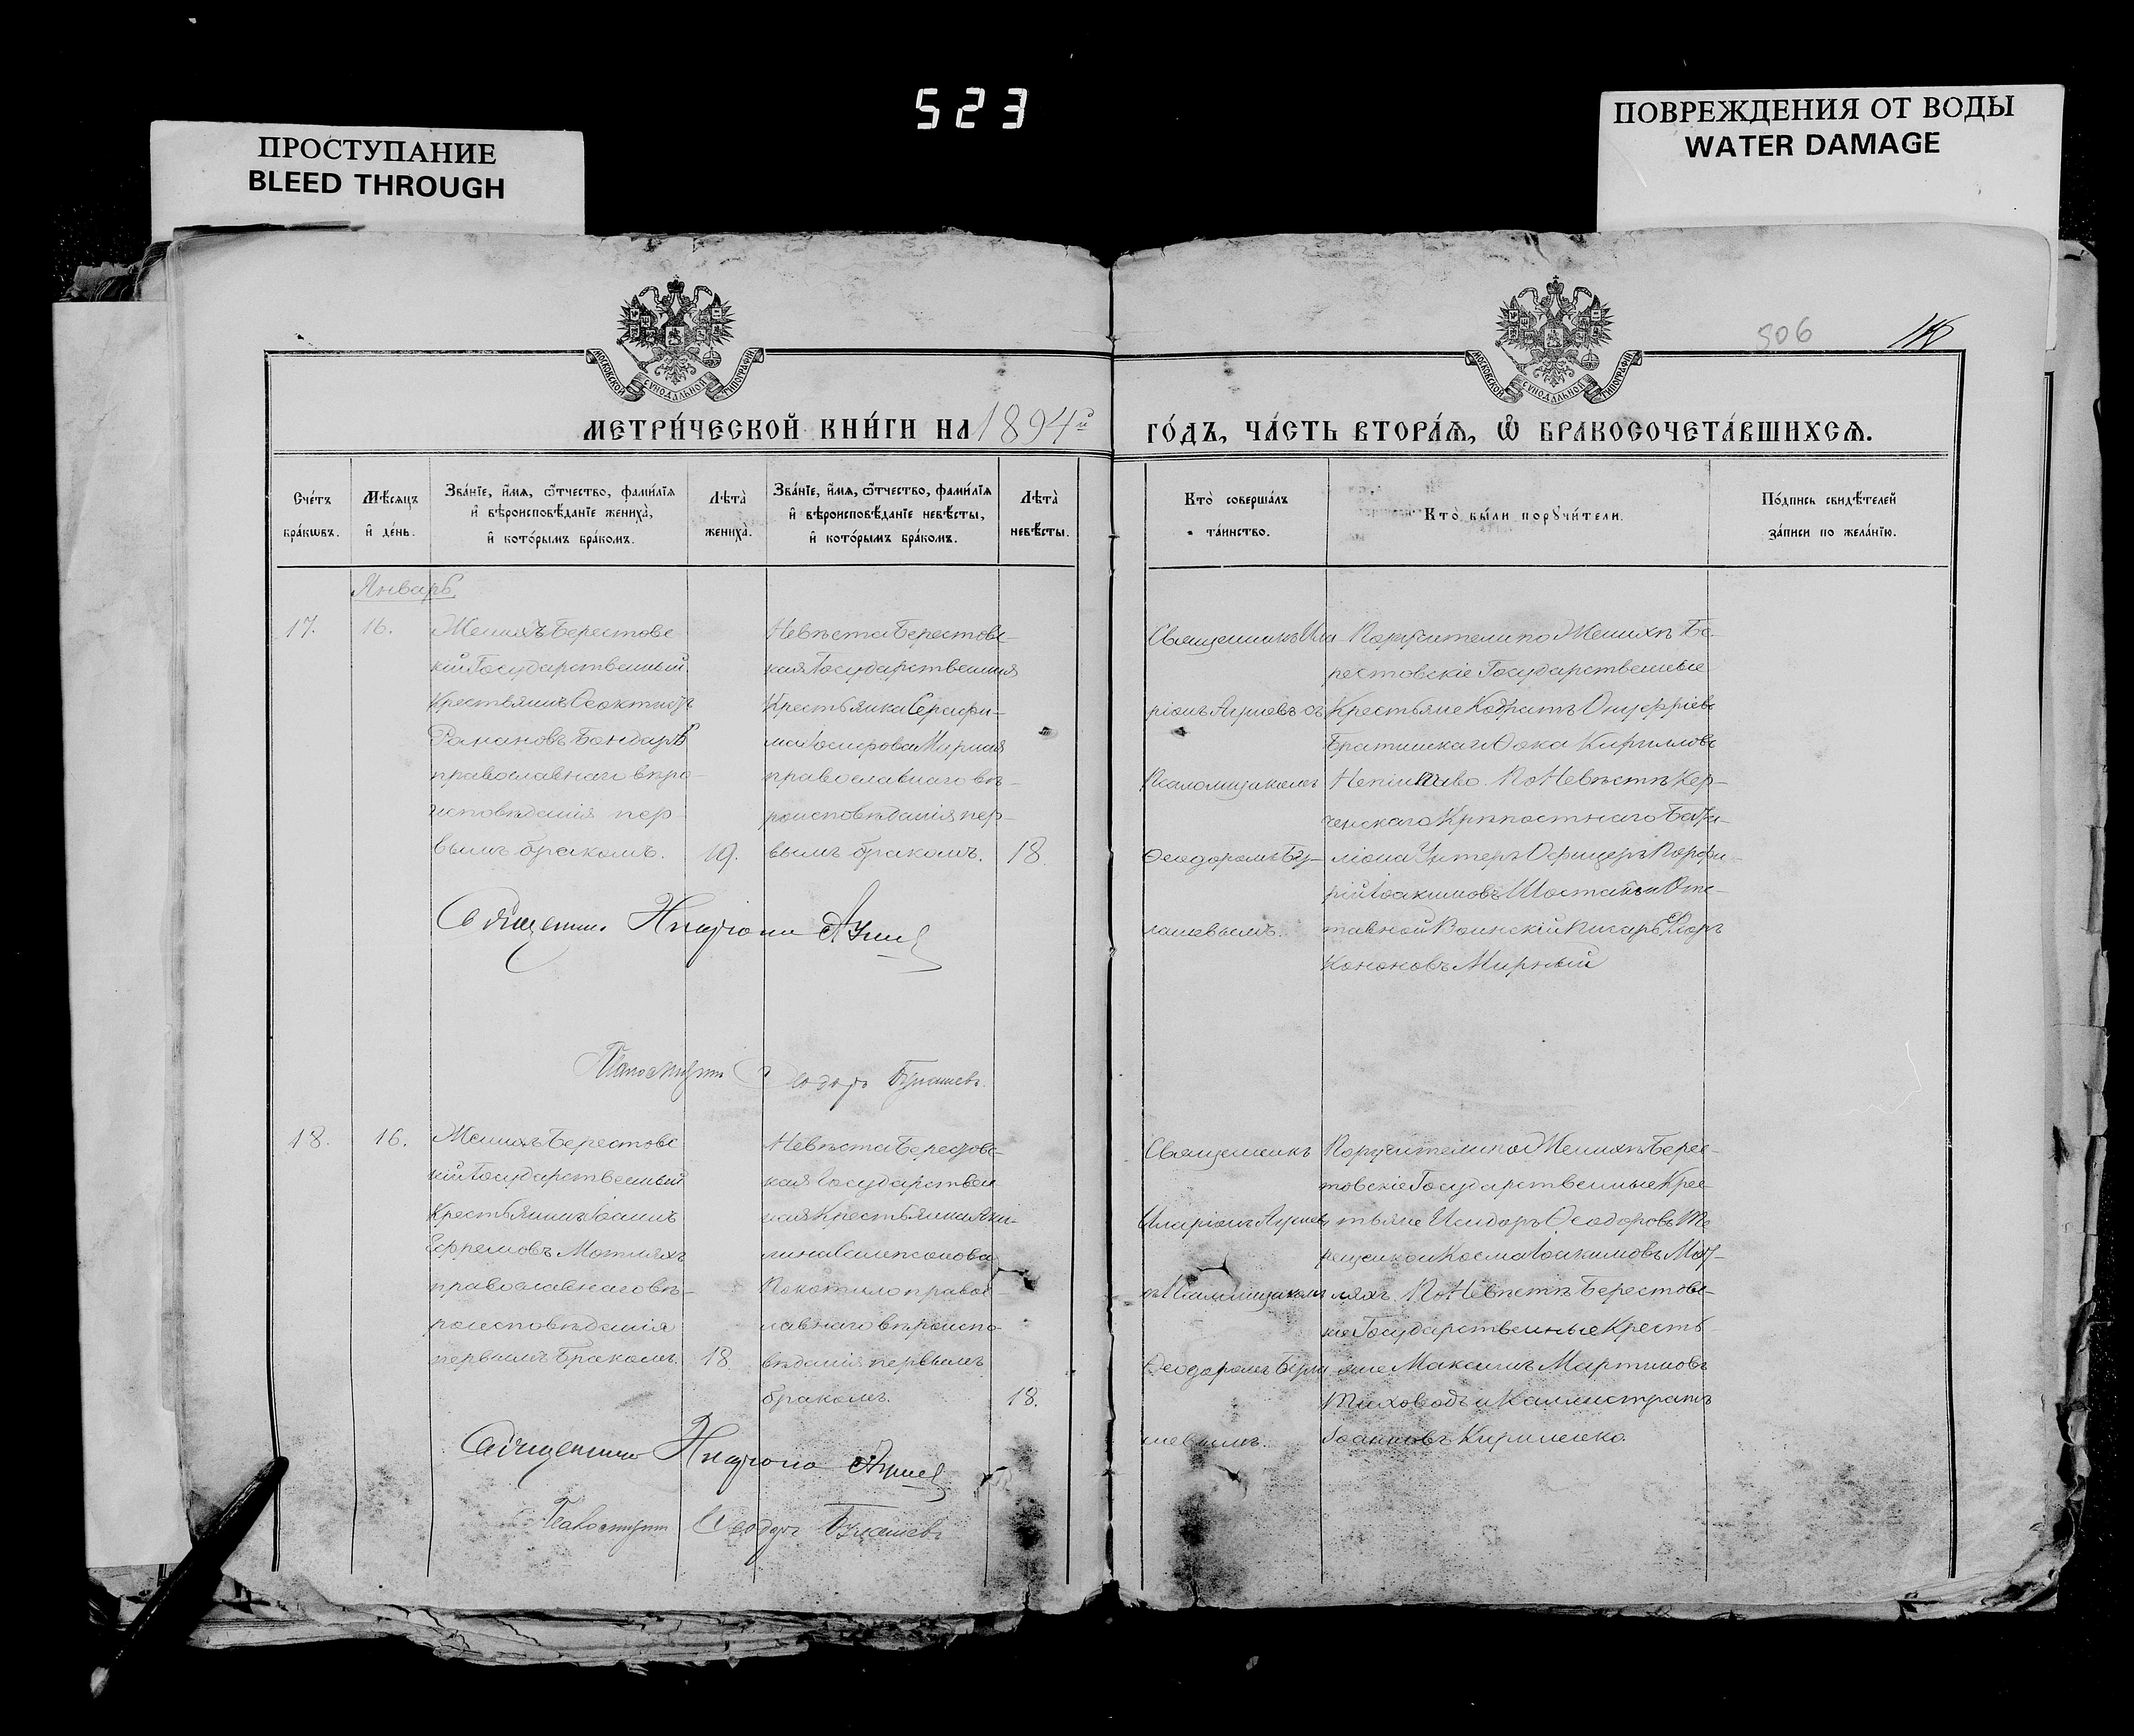 523
ПРОСТУПАНИЕ
BLEED THROUGH
ПОВРЕЖДЕНИЯ ОТ ВОДЫ
WATER DAMAGE
506
МОСКОВСКОЙ СУНОДАЛЬНОЙ ТИПОГРАФІИ
МОСКОВСКОЙ СУНОДАЛЬНОЙ ТИПОГРАФІИ
МЕТРИ́ЧЕСКОЙ КНИ́ГИ НА 1894й
ГО́ДЪ, ЧА́СТЬ ВТОРА́Я, Ѡ БРАКОСОЧЕТА́ВШИХСЯ.
Сче́тъ бра́кѡвъ.
Мѣ́сяцъ и҆ де́нь.
Зва́нїе, и҆́мѧ, ѻ҆́тчество, фами́лїѧ и҆ вѣроисповѣ́данїе жениха̀, и҆ кото́рымъ бра́комъ.
Лѣта̀ жениха̀.
Зва́нїе, и҆́мѧ, ѻ҆́тчество, фами́лїѧ и҆ вѣроисповѣ́данїе невѣ́сты, и҆ кото́рымъ бра́комъ.
Лѣта̀ невѣ́сты.
Кто̀ соверша́лъ та́инство.
Кто̀ бы́ли порꙋчи́тели.
По́дпись свидѣ́телей за́писи по жела́нїю.
Январь
17.
16.
Женихъ Берестовс
кій Государственный
Крестьянинъ Ѳеоктистъ
Романовъ Бондарь
православнаго вѣро-
исповѣданія пер-
вымъ бракомъ.
19.
Невѣста Берестовс-
кая Государственная
Крестьянка Серафи-
ма Іосифова Мирная
православнаго вѣ-
роисповѣданія пер-
вымъ бракомъ.
18.
Священникъ Ила
ріонъ Агуевъ съ
Псаломщикомъ
Ѳеодоромъ Бу-
лашевымъ.
Поручители по Женихѣ Бе-
рестовскіе Государственные
Крестьяне Кодратъ Онуфріевъ
Ѳока Кирилловъ
По Невѣстѣ Кер-
ченскаго Крѣпостнаго Бата-
ліона Унтеръ Офицеръ Порфи-
рій Іоакимовъ Отс-
тавной Воинскій Писарь
Кононовъ Мирный
Ѳеодоръ Булашевъ.
18.
16.
Женихъ Берестовс
кій Государственный
Крестьянинъ Іоаннъ
Ефремовъ Мотляхъ
православнаго вѣ-
роисповѣданія
первымъ бракомъ.
18.
Невѣста Берестовс-
кая Государствен
ная Крестьянка Аки-
лина
Покотило правос-
лавнаго вѣроиспо-
вѣданія первымъ
бракомъ.
18.
Священникъ
Иларіонъ Агуевъ
съ Псаломщикомъ
Ѳеодоромъ Була
шевымъ.
Поручители по Женихѣ Берес-
товскіе Государственные Крес-
тьяне Исидоръ Ѳеодоровъ Те
рещенко и Косма Іоакимовъ Мот-
ляхъ По Невѣстѣ Берестовс-
кіе Государственные Кресть
яне Максимъ Мартиновъ
Тиховодъ и Каллистратъ
Іоанновъ Кириленко.
Ѳеодоръ Булашевъ